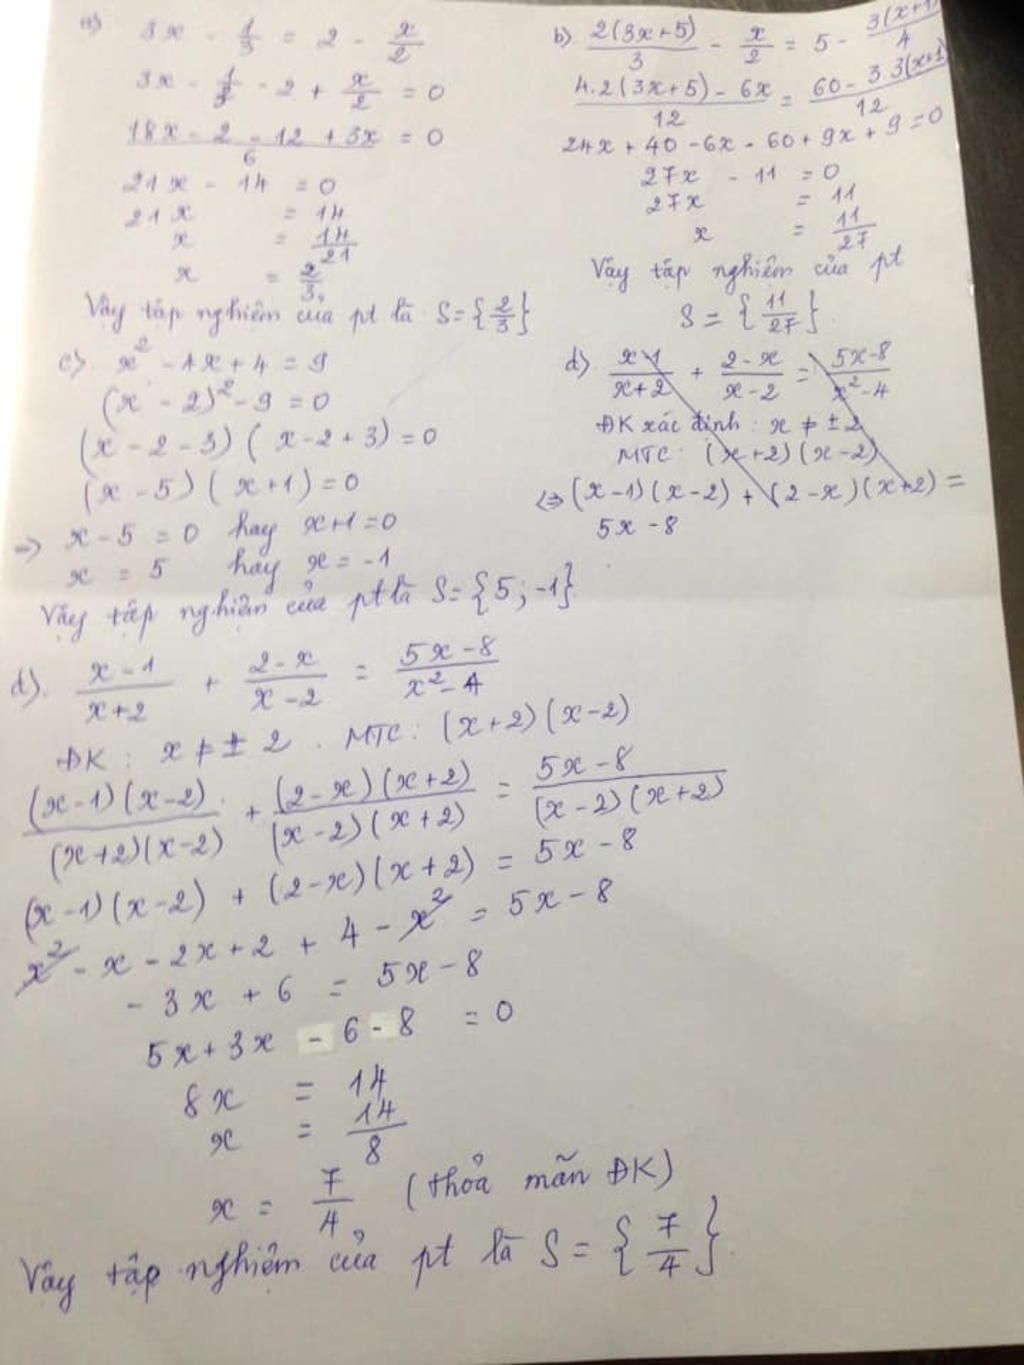 a) 3x - 1/3 = 2 - x/2
3x - 1/3 - 2 + x/2 = 0
(18x - 2 - 12 + 3x)/6 = 0
21x - 14 = 0
21x = 14
x = 14/21
x = 2/3
Vậy tập nghiệm của pt là S = {2/3}
b) 2(3x+5)/3 - x/2 = 5 - 3(x+1)/4
(4.2(3x+5) - 6x)/12 = (60 - 3.3(x+1))/12
24x + 40 - 6x - 60 + 9x + 9 = 0
27x - 11 = 0
27x = 11
x = 11/27
Vậy tập nghiệm của pt
S = {11/27}.
c) x² - 4x + 4 = 9
(x - 2)² - 9 = 0
(x - 2 - 3)(x - 2 + 3) = 0
(x - 5)(x + 1) = 0
=> x - 5 = 0 hay x + 1 = 0
x = 5 hay x = -1
Vậy tập nghiệm của pt là S = {5; -1}.
d) (x-1)/(x+2) + (2-x)/(x-2) = (5x-8)/(x²-4)
ĐK xác định: x ≠ ±2
MTC: (x+2)(x-2)
<=> (x-1)(x-2) + (2-x)(x+2) =
5x - 8
d). (x-1)/(x+2) + (2-x)/(x-2) = (5x-8)/(x²-4)
ĐK: x ≠ ±2. MTC: (x+2)(x-2)
(x-1)(x-2)/(x+2)(x-2) + (2-x)(x+2)/(x-2)(x+2) = (5x-8)/(x-2)(x+2)
(x-1)(x-2) + (2-x)(x+2) = 5x - 8
x² - x - 2x + 2 + 4 - x² = 5x - 8
-3x + 6 = 5x - 8
5x + 3x - 6 - 8 = 0
8x = 14
x = 14/8
x = 7/4 (thỏa mãn ĐK)
Vậy tập nghiệm của pt là S = {7/4}.